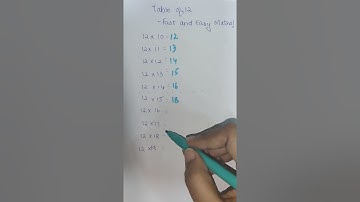 Table of 12
- Fast and Easy Method
12 x 10 = 12
12 x 11 = 13
12 x 12 = 14
12 x 13 = 15
12 x 14 = 16
12 x 15 = 18
12 x 16 =
12 x 17 =
12 x 18 =
12 x 19 =